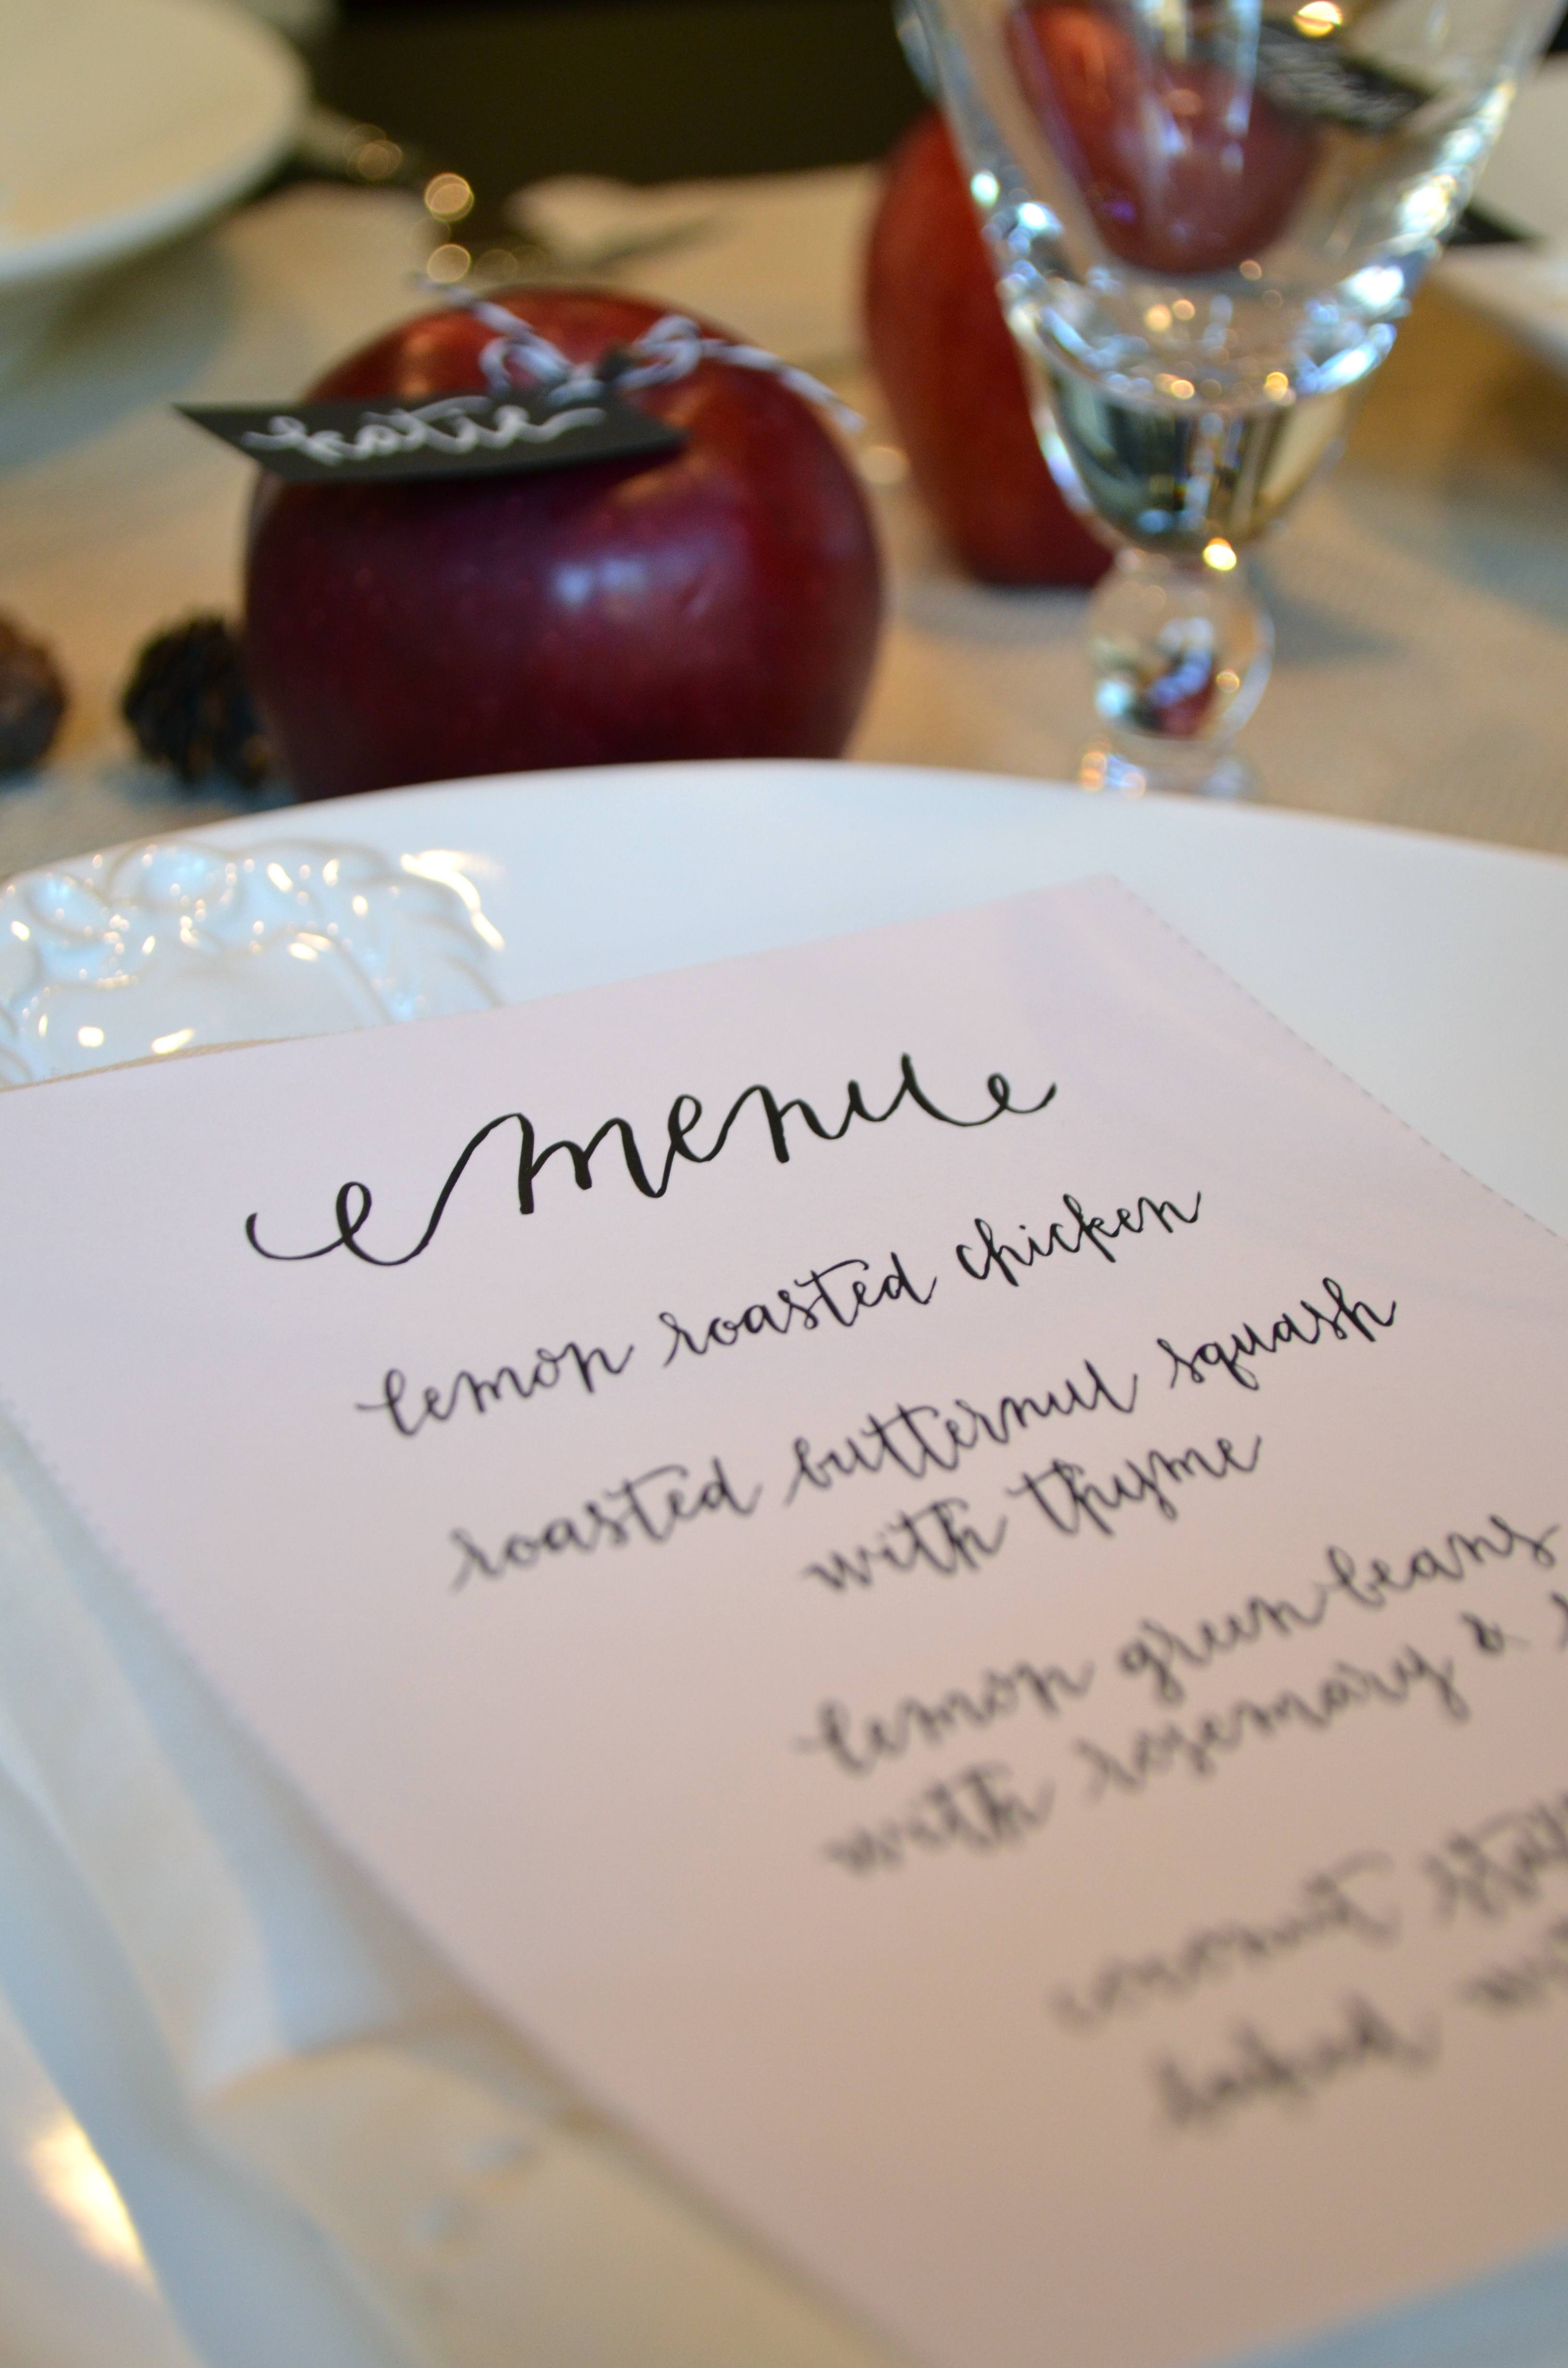 katie
menu
lemon roasted chicken
roasted butternut squash
with thyme
lemon green beans
with rosemary &
coconut
baked